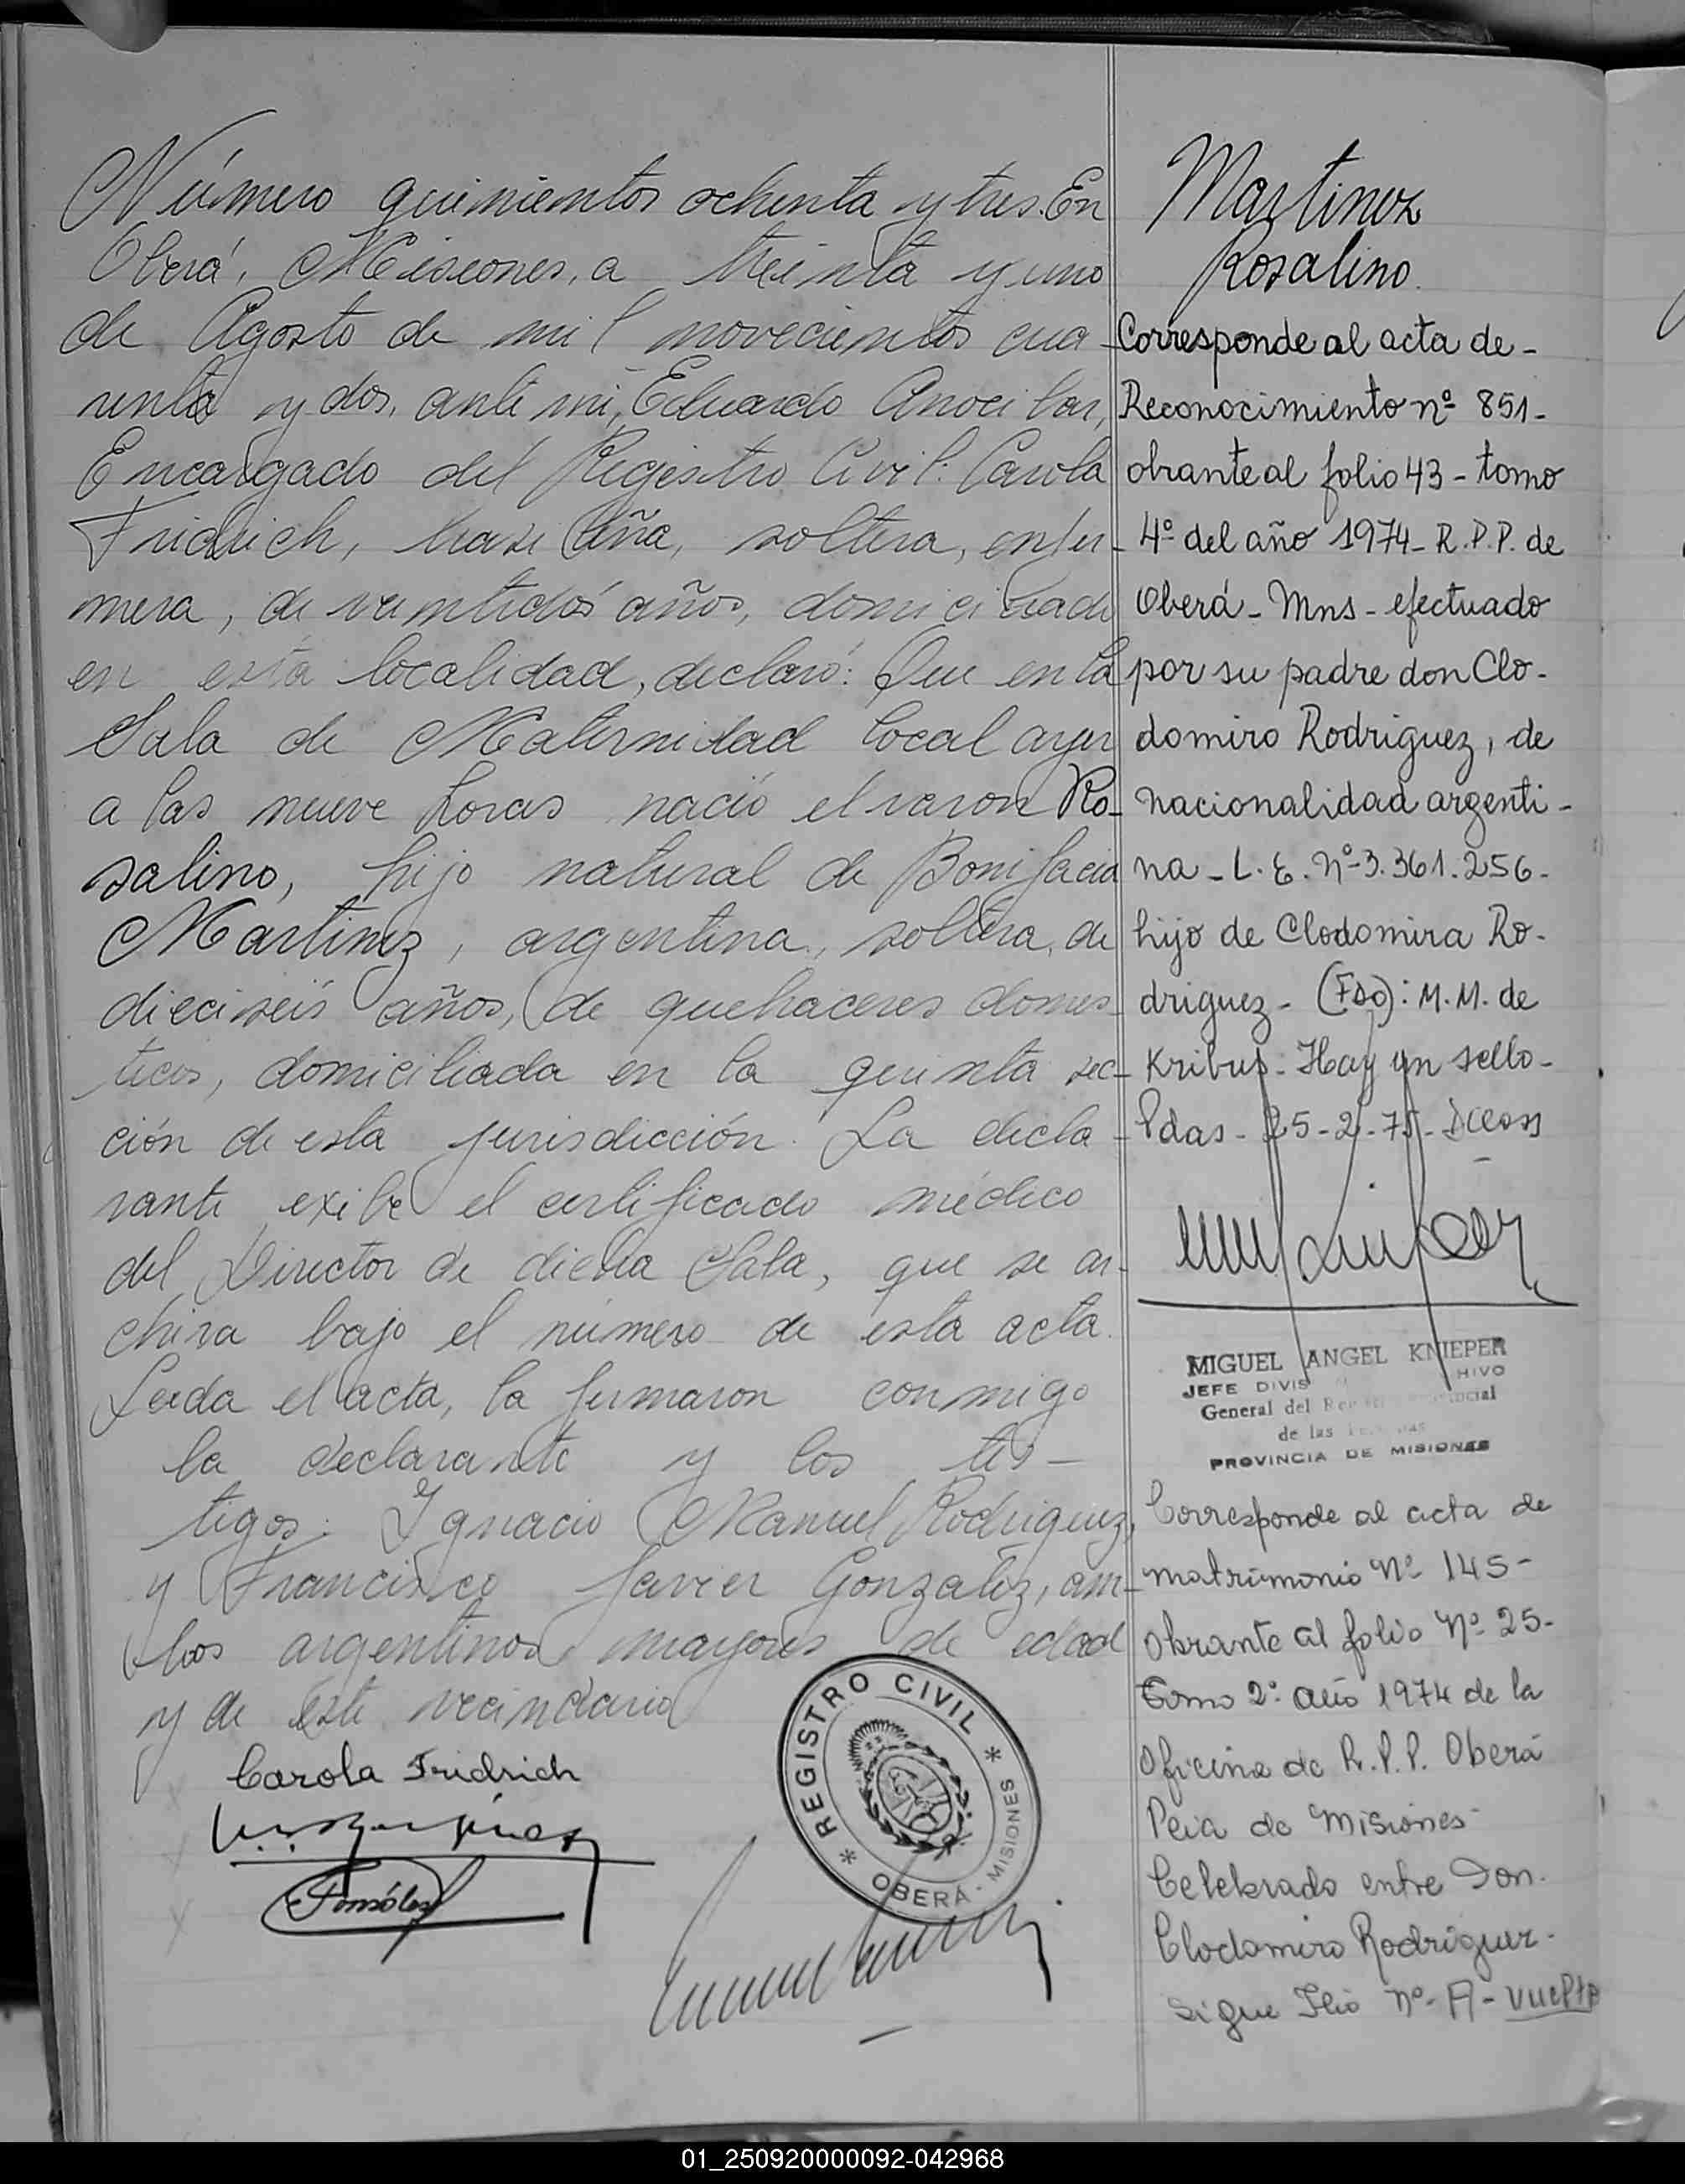 Número quinientos ochenta y tres. En
Oberá, Misiones, a treinta y uno
de Agosto de mil novecientos cua-
renta y dos, ante mí, Eduardo
Encargado del Registro Civil: Carola
Fridrich, brasileña, soltera, enfer-
mera, de veintidós años, domiciliada
en esta localidad, declaró: Que en la
Sala de Maternidad local ayer
a las nueve horas nació el varon Ro-
salino, hijo natural de Bonifacia
Martinez, argentina, soltera, de
dieciseis años, de quehaceres domes-
ticos, domiciliada en la quinta sec-
ción de esta jurisdicción. La decla-
rante exibe el certificado médico
del Director de dicha Sala, que se ar-
chiva bajo el número de esta acta.
Leida el acta, la firmaron conmigo
la declarante y los tes-
tigos: Ignacio Manuel Rodriguez,
y Francisco Javier Gonzalez, am-
bos argentinos mayores de edad
y de este vecindario
Carola Fridrich
REGISTRO CIVIL
OBERÁ - MISIONES
Martinez
Rosalino.
Corresponde al acta de-
Reconocimiento nº 851-
obrante al folio 43 - tomo
4º del año 1974- R.P.P. de
Oberá - Mns - efectuado
por su padre don Clo-
domiro Rodriguez, de
nacionalidad argenti-
na - L.E. Nº 3.361.256-
hijo de Clodomira Ro-
driguez - (Fdo): M.M. de
Kribus - Hay un sello-
Pdas - 25-2-75-
MIGUEL ANGEL KNIEPER
JEFE DIVIS HIVO
General del
de las
PROVINCIA DE MISIONES
Corresponde al acta de
matrimonio Nº 145-
obrante al folio Nº 25-
Tomo 2º año 1974 de la
Oficina de R.P.P. Oberá
Pcia de Misiones-
Celebrado entre Don.
Clodomiro Rodriguez-
Sigue Flio nº- A - vuelta
01_250920000092-042968